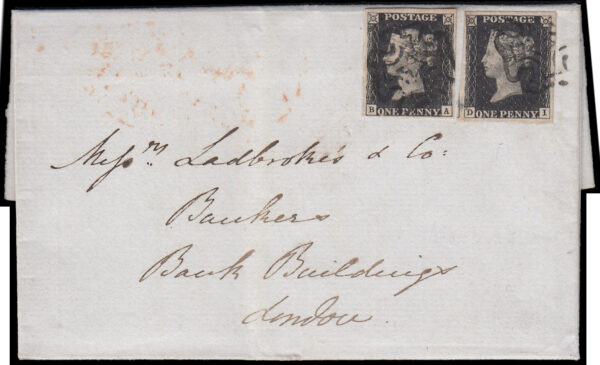 POSTAGE POSTAGE
B A D I
ONE PENNY ONE PENNY
Messrs Ladbroke's & Co:
Bankers
Bank Buildings
London.